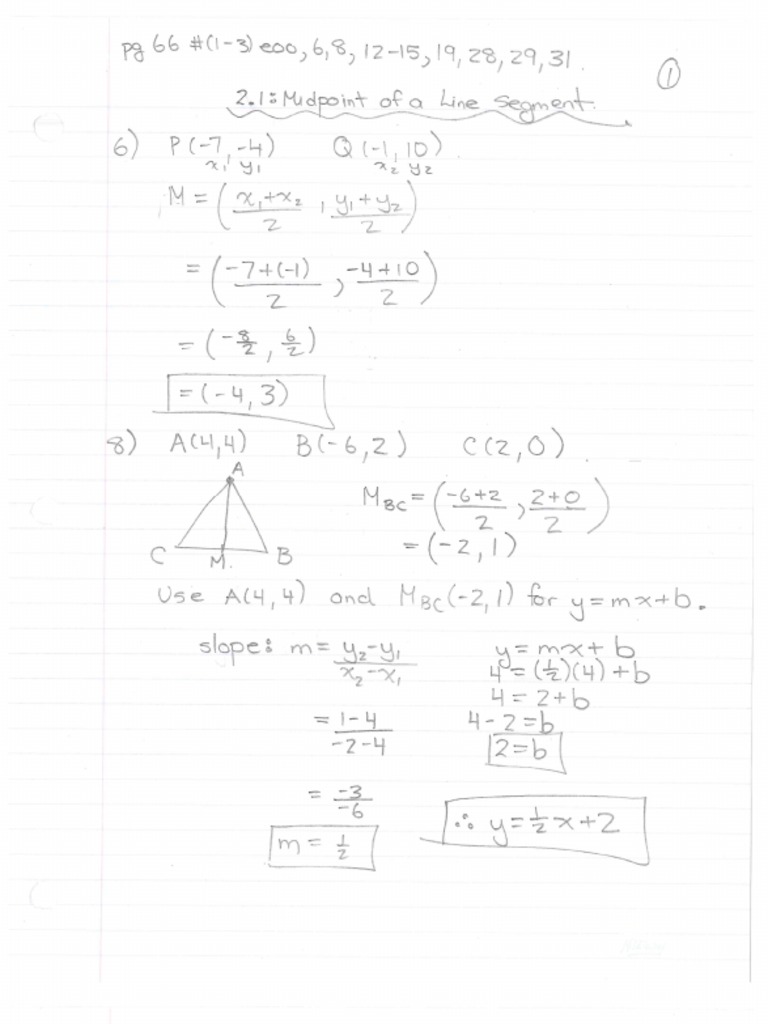 pg 66 #(1-3) eoo, 6, 8, 12-15, 19, 28, 29, 31.
①
2.1: Midpoint of a Line Segment.
6) P(-7, -4) Q(-1, 10)
x₁ y₁ x₂ y₂
M = (x₁+x₂/2, y₁+y₂/2)
= (-7+(-1)/2, -4+10/2)
= (-8/2, 6/2)
= (-4, 3)
8) A(4,4) B(-6,2) C(2,0)
A
C M. B
M_BC = (-6+2/2, 2+0/2)
= (-2, 1)
Use A(4,4) and M_BC(-2,1) for y=mx+b.
slope: m = y₂-y₁/x₂-x₁
= 1-4/-2-4
= -3/-6
m = 1/2
y=mx+b
4=(1/2)(4)+b
4=2+b
4-2=b
2=b
∴ y=1/2x+2